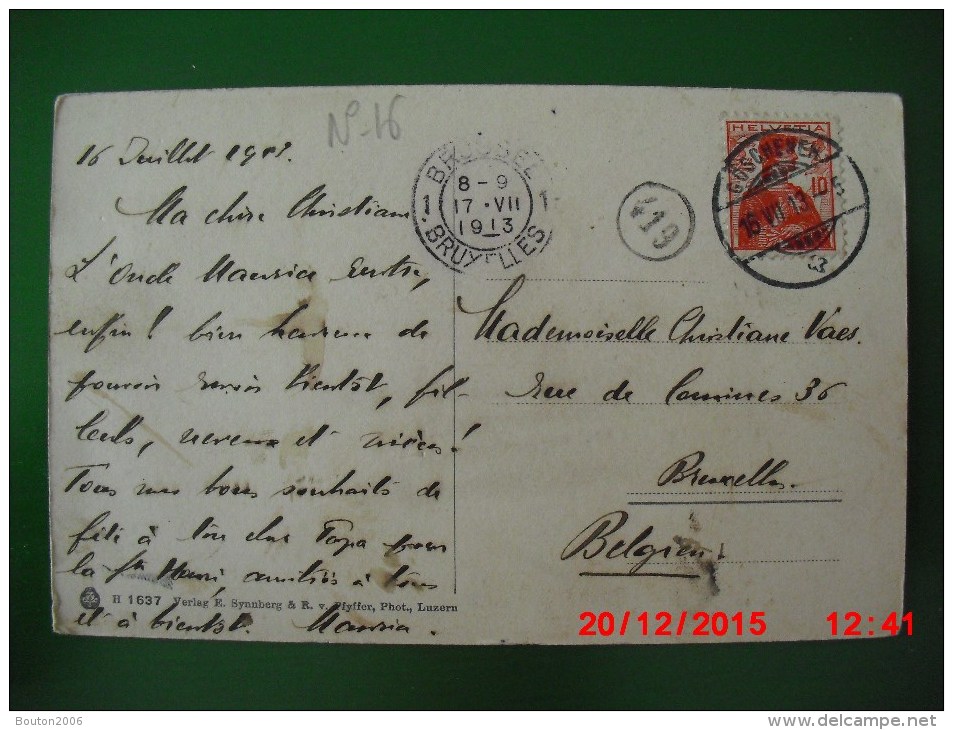 No 16
16 Juillet 1913.
Ma chère Christiane
L'Oncle Maurice rentre,
enfin! bien heureux de
pouvoir revoir bientôt, fil-
leuls, neveux et nièces!
Tous mes bons souhaits de
fête à ton cher Papa pour
la St Henri, amitiés à tous
et à bientôt. Maurice.
H 1637 Verlag E. Synnberg & R. v. Pfyffer, Phot., Luzern
BRUSSEL
1 8-9 1
17 · VII
1913
BRUXELLES
419
HELVETIA
10
GÖSCHENEN
16.VII.13
Mademoiselle Christiane Vaes.
Rue de Comines 36
Bruxelles.
Belgien!
20/12/2015 12:41
Bouton2006
delcampe.net